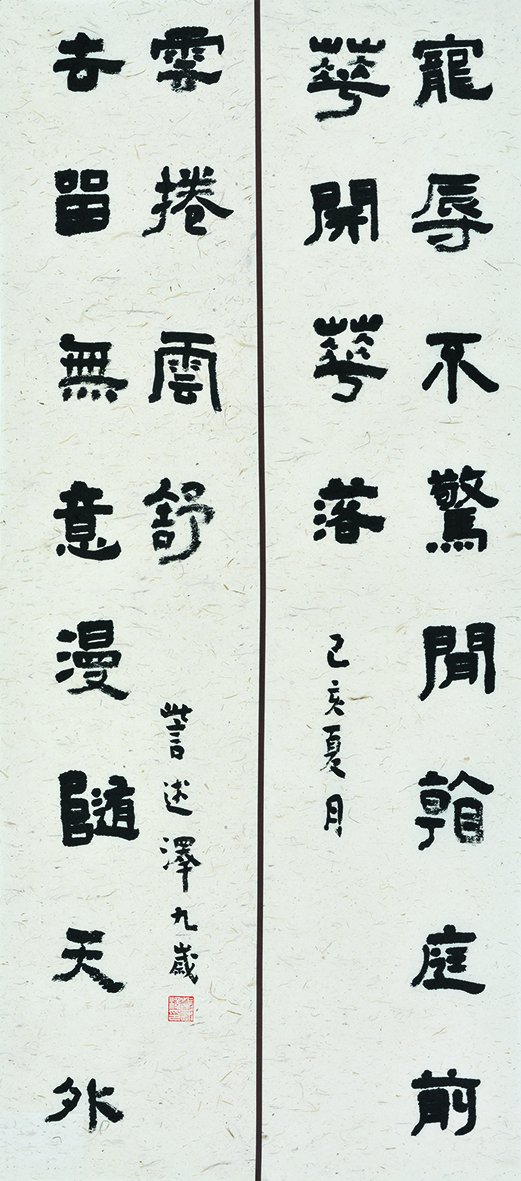 寵辱不驚閒看庭前
華開華落
己亥夏月
去留無意漫隨天外
雲捲雲舒
訾述澤九歲